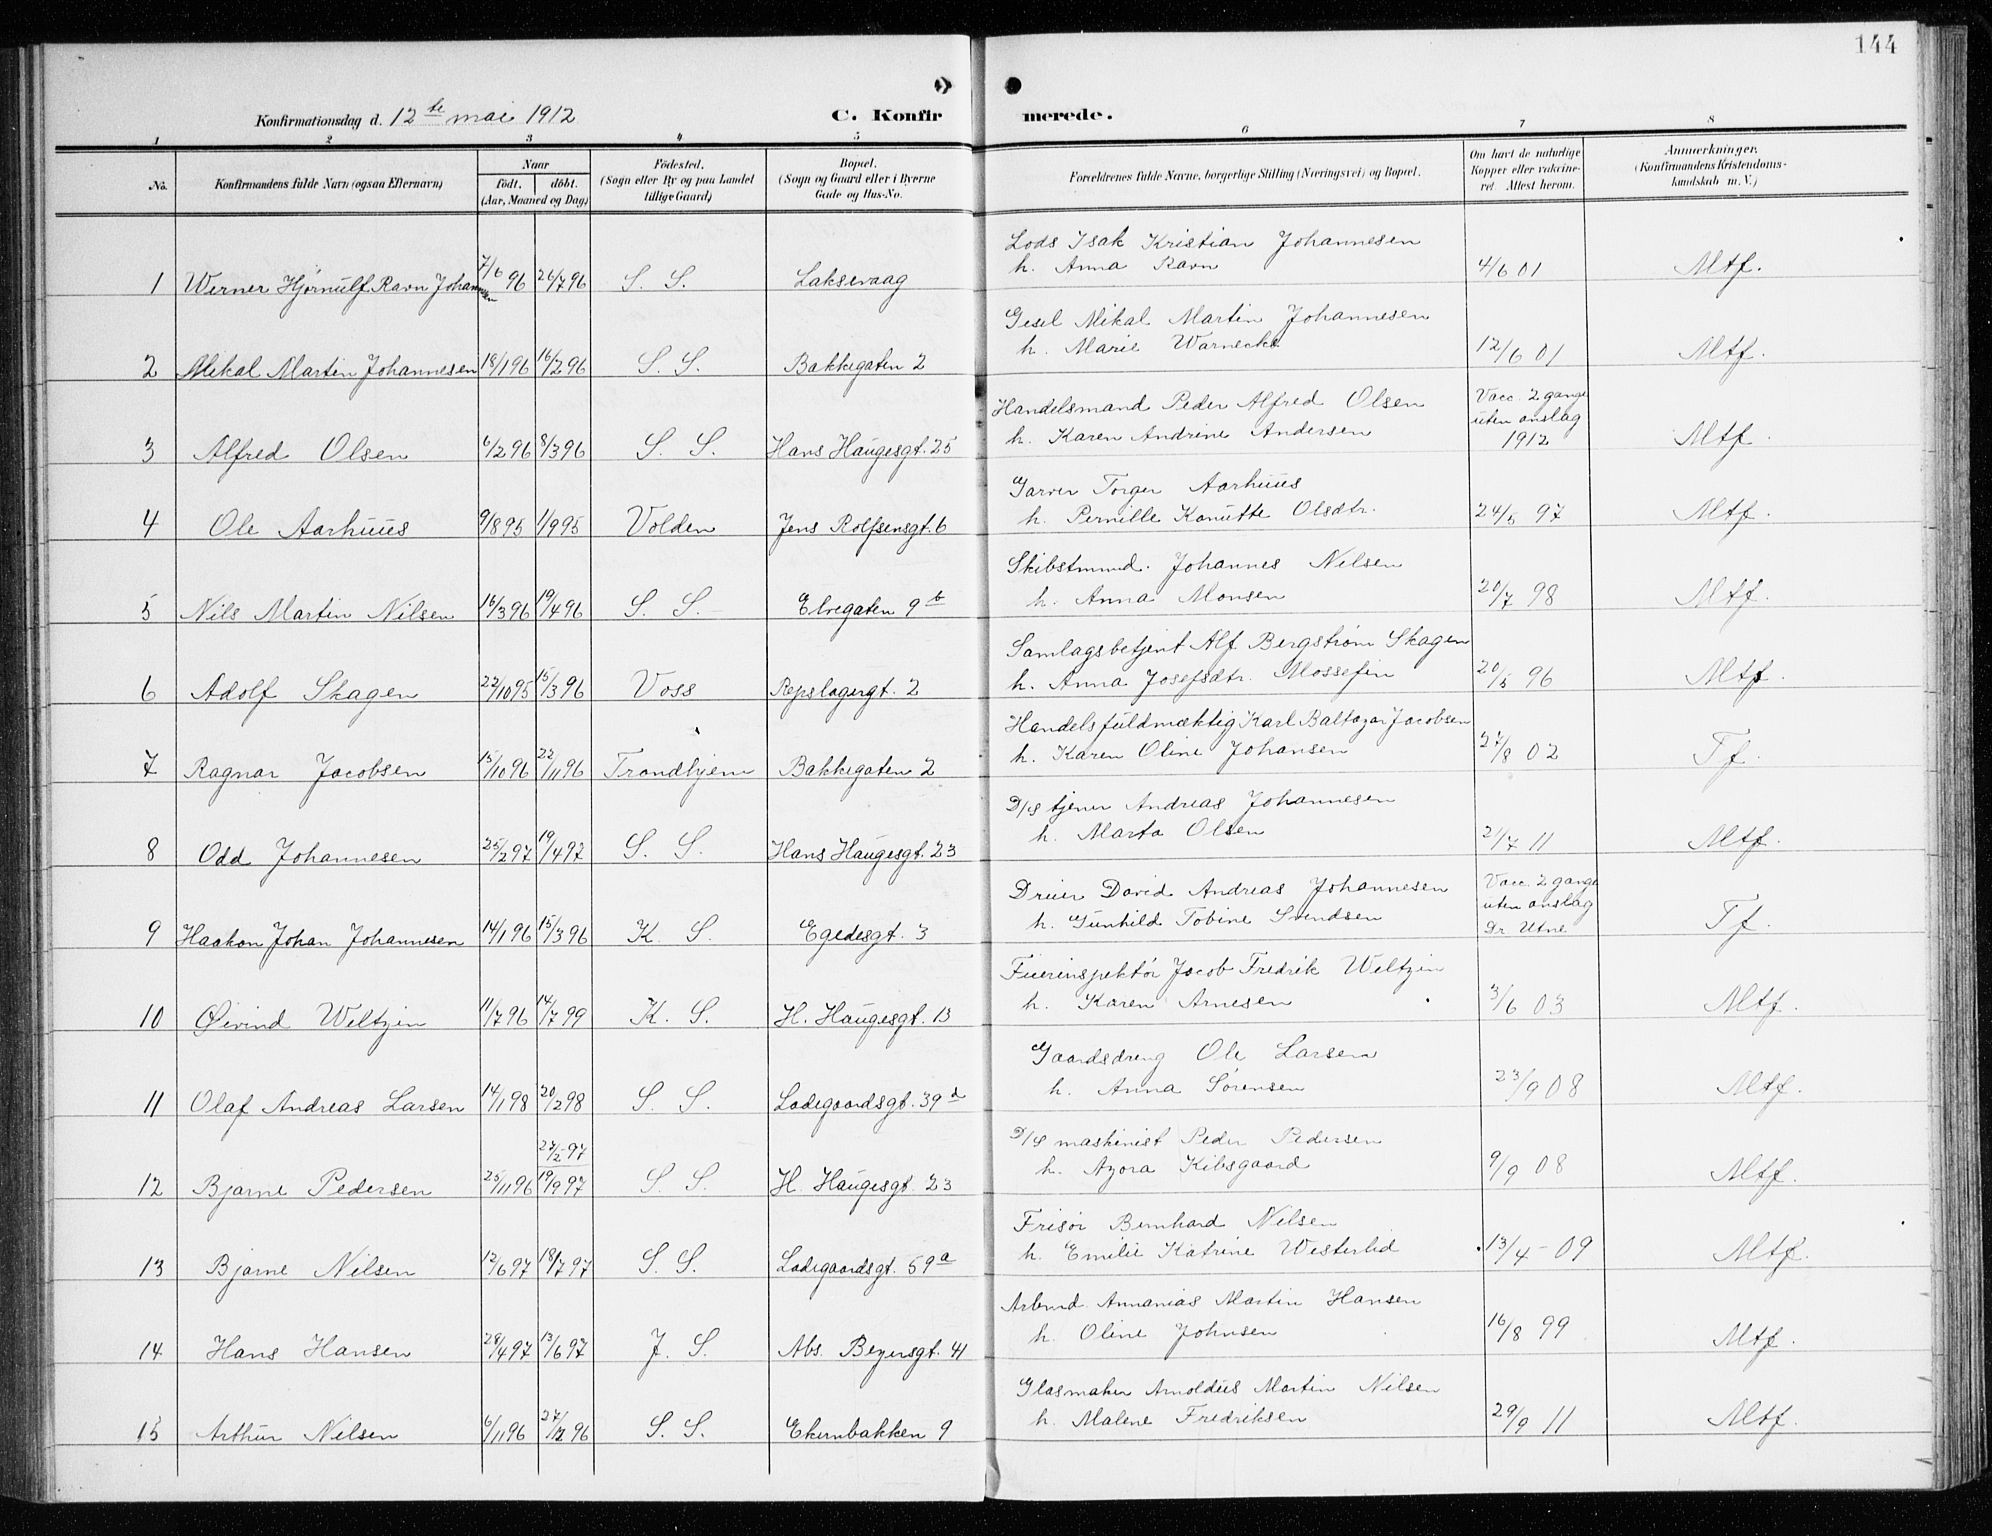 144
Konfirmationsdag d. 12te mai 1912 C. Konfirmerede.
1 2 3 4 5 6 7 8
No. Konfirmandens fulde Navn (ogsaa Efternavn) Naar født. døbt. (Aar, Maaned og Dag) Fødested. (Sogn eller By og paa Landet tillige Gaard) Bopæl. (Sogn og Gaard eller i Byerne Gade og Hus-No. Forældrenes fulde Navne, borgerlige Stilling (Næringsvei) og Bopæl. Om havt de naturlige Kopper eller vakcineret. Attest herom. Anmærkninger. (Konfirmandens Kristendomskundskab m. V.)
Lods Isak Kristian Johannesen
1 Werner Hjørnulf Ravn Johannesen 7/6 96 26/7 96 S. S. Laksevaag h. Anna Ravn 4/6 01 Mtf.
Gesel Mikal Martin Johannesen
2 Mikal Martin Johannesen 18/1 96 16/2 96 S. S. Bakkegaten 2 h. Marie Warnecke 12/6 01 Mtf.
Handelsmand Peder Alfred Olsen Vacc. 2 gange uten anslag
3 Alfred Olsen 6/2 96 8/3 96 S. S. Hans Haugesgt. 25 h. Karen Andrine Andersen 1912 Mtf.
Garver Torger Aarhuus
4 Ole Aarhuus 9/8 95 1/9 95 Volden Jens Rolfsensgt. 6 h. Pernille Kanutte Olsdtr. 24/5 97 Mtf.
Skibstmmd. Johannes Nilsen
5 Nils Martin Nilsen 16/3 96 19/4 96 S. S. Elvegaten 9b h. Anna Monsen 20/7 98 Mtf.
Samlagsbetjent Alf Bergstrøm Skagen
6 Adolf Skagen 22/10 95 15/3 96 Voss Repslagergt. 2 h. Anna Josefsdtr. Mossefin 20/5 96 Mtf.
Handelsfuldmæktig Karl Baltazar Jacobsen
7 Ragnar Jacobsen 15/10 96 22/11 96 Trondhjem Bakkegaten 2 h. Karen Oline Johansen 27/8 02 Tf.
D/S tjener Andreas Johannesen
8 Odd Johannesen 25/2 97 19/4 97 S. S. Hans Haugesgt. 23 h. Marta Olsen 21/7 11 Mtf.
Dreier David Andreas Johannesen Vacc. 2 gange uten anslag
9 Haakon Johan Johannesen 14/1 96 15/3 96 K. S. Egedesgt. 3 h. Gunhild Tobine Svendsen Dr Utne Tf.
Fierinspektør Jacob Fredrik Weltzin
10 Øivind Weltzin 11/7 96 14/7 99 K. S. H. Haugesgt. 13 h. Karen Arnesen 3/6 03 Mtf.
Gaardsdreng Ole Larsen
11 Olaf Andreas Larsen 14/1 98 20/2 98 S. S. Ladegaardsgt. 39d h. Anna Sørensen 23/9 08 Mtf.
27/2 97 D/S maskinist Peder Pedersen
12 Bjarne Pedersen 25/11 96 19/9 97 S. S. H. Haugesgt. 23 h. Azora Kibsgaard 9/9 08 Mtf.
Frisør Bernhard Nilsen
13 Bjarne Nilsen 12/6 97 18/7 97 S. S. Ladegaardsgt. 59a h. Emilie Katrine Westerlid 13/4 - 09 Mtf.
Arbmd. Annanias Martin Hansen
14 Hans Hansen 28/4 97 13/6 97 J. S. Abs. Beyersgt. 41 h. Oline Johnsen 16/8 99 Mtf.
Glasmaker Arnoldus Martin Nilsen
15 Arthur Nilsen 6/11 96 27/12 96 S. S. Ekernbakken 9 h. Malene Fredriksen 29/9 11 Mtf.